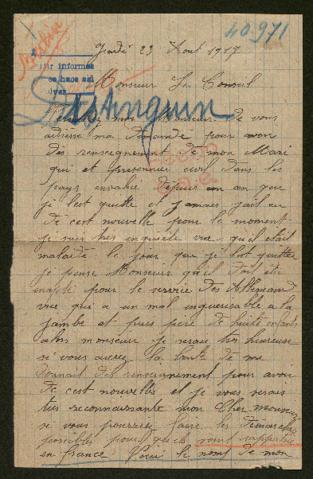 40.971
Jeudi 23 Aout 1917
Monsieur Le Consul
Destinguin
mon Monsieur de vous
adresse ma demande pour avoir
des renseignement de mon Mari
qui et prisonnier civil dans les
pays envahie depuis un an que
je lest quitté et jamais jait eu
de cest nouvelle pour le moment
je suis tres inquiete vue qu'il etait
malade le jour que je lait quitter
je pense Monsieur qu'il doit ete
inapte pour le service des Allemand
vue qui a un mal inguerisable a la
jambe et puis pere de huit enfants
alors monsieur je serais bien heureuse
si vous auriez la bonté de me
donnait des renseignement pour avoir
de cest nouvelle et je vous serais
tres reconnaissante mon cher monsieur
si vous pourriez faire les demarches
possibles pour
en france Voici le nom de mon